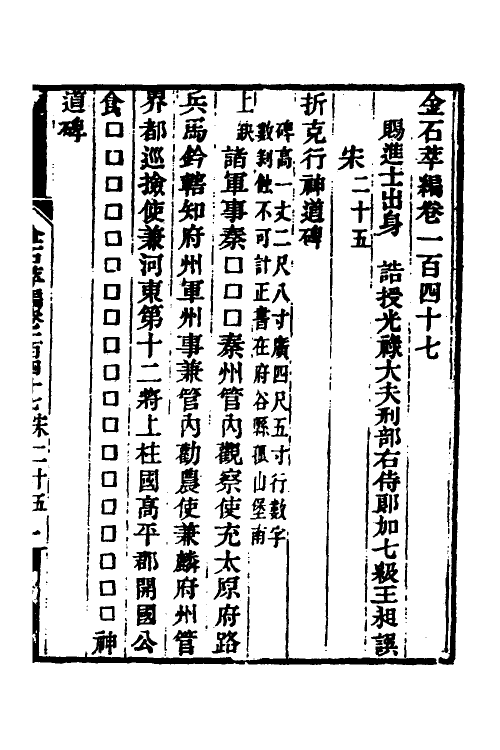 金石萃編卷一百四十七
賜進士出身　誥授光祿大夫刑部右侍郎加七級王昶譔
宋二十五
折克行神道碑
碑高一丈二尺八寸廣四尺五寸行數字
數剝蝕不可計正書在府谷縣孤山堡南
上缺諸軍事秦□□□秦州管內觀察使充太原府路
兵馬鈐轄知府州軍州事兼管內勸農使兼麟府州管
界都巡撿使兼河東第十二將上柱國高平郡開國公
食□□□□□□□□□□□□□□□□□□神
道碑
金石萃編卷一百四十七 宋二十五 一